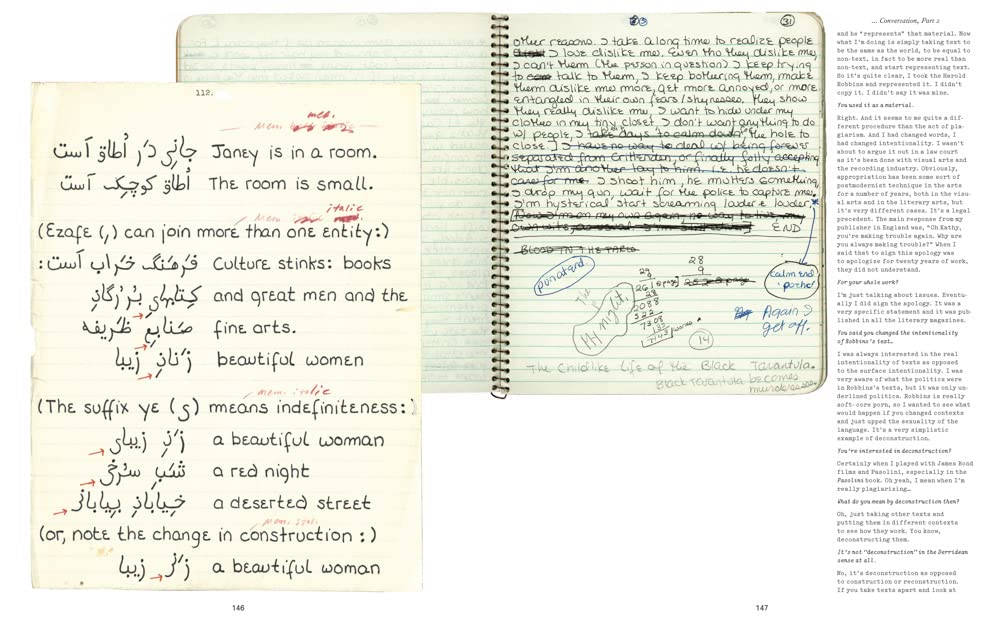 112.
mes.
Mem.
جاني در اُطاق اَست Janey is in a room.
اُطاق كوچِک اَست The room is small.
italic
Mem.
(Ezafe (ِ) can join more than one entity:)
: فَرهَنگ خَراب اَست Culture stinks: books
كِتابهاي بُزُرگانِ and great men and the
صَنايعِ ظَريفه fine arts.
زَنانِ زيبا beautiful women
mem. italic
(The suffix ye (ي) means indefiniteness:)
زَنِ زيباي a beautiful woman
شَبِ سُرخي a red night
خيابانِ بيابانی a deserted street
mem. ital.
(or, note the change in construction :)
زَني زيبا a beautiful woman
146
31
other reasons. I take a long time to realize people
I love dislike me. Even tho they dislike me,
I can't them (the person in question) I keep trying
to talk to them, I keep bothering them, make
them dislike me more, get more annoyed, or more
entangled in their own fears/shynesses. they show
they really dislike me. I want to hide under my
clothes in my tiny closet. I don't want anything to do
w/ people, I take days to calm down, the hole to
close. I have no way to deal w/ being forever
separated from Crittenden, or finally fully accepting
that I'm another lay to him, i.e. he doesn't
care for me. I shoot him, he mutters something,
I drop my gun, wait for the police to capture me.
I'm hysterical start screaming louder & louder.
Now I'm on my own again, no way to live, my
END
BLOOD IN THE
put at end
calm end
28
9
29
26
28
2088
522
7308
14
All night
Again I
get off.
The Childlike Life of the Black Tarantula.
Black Tarantula becomes
murderess.
147
... Conversation, Part 2
and he "represents" that material. Now
what I'm doing is simply taking text to
be the same as the world, to be equal to
non-text, in fact to be more real than
non-text, and start representing text.
So it's quite clear, I took the Harold
Robbins and represented it. I didn't
copy it. I didn't say it was mine.
You used it as a material.
Right. And it seems to me quite a dif-
ferent procedure than the act of pla-
giarism. And I had changed words, I
had changed intentionality. I wasn't
about to argue it out in a law court
as it's been done with visual arts and
the recording industry. Obviously,
appropriation has been some sort of
postmodernist technique in the arts
for a number of years, both in the visu-
al arts and in the literary arts, but
it's very different cases. It's a legal
precedent. The main response from my
publisher in England was, "Oh Kathy,
you're making trouble again. Why are
you always making trouble?" When I
said that to sign this apology was
to apologize for twenty years of work,
they did not understand.
For your whole work?
I'm just talking about issues. Eventu-
ally I did sign the apology. It was a
very specific statement and it was pub-
lished in all the literary magazines.
You said you changed the intentionality
of Robbins's text…
I was always interested in the real
intentionality of texts as opposed
to the surface intentionality. I was
very aware of what the politics were
in Robbins's texts, but it was only un-
derlined politics. Robbins is really
soft-core porn, so I wanted to see what
would happen if you changed contexts
and just upped the sexuality of the
language. It's a very simplistic
example of deconstruction.
You're interested in deconstruction?
Certainly when I played with James Bond
films and Pasolini, especially in the
Pasolini book. Oh yeah, I mean when I'm
really plagiarizing…
What do you mean by deconstruction then?
Oh, just taking other texts and
putting them in different contexts
to see how they work. You know,
deconstructing them.
It's not "deconstruction" in the Derridean
sense at all.
No, it's deconstruction as opposed
to construction or reconstruction.
If you take texts apart and look at